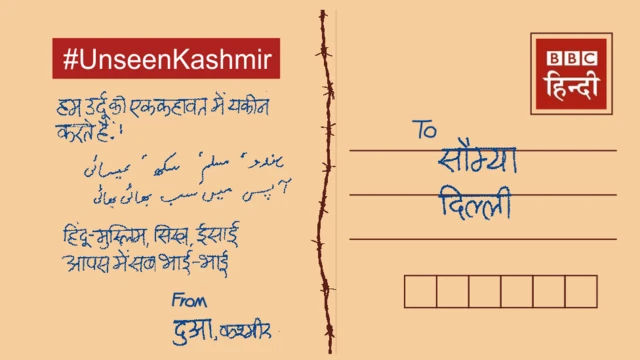 #UnseenKashmir
हम उर्दू की एक कहावत में यकीन
करते हैं.!
ہندو، مسلم، سکھ، عیسائی
آپس میں سب بھائی بھائی
हिंदू-मुस्लिम, सिख, ईसाई
आपस में सब भाई-भाई
From
दुआ, कश्मीर
BBC
हिन्दी
To
सौम्या
दिल्ली